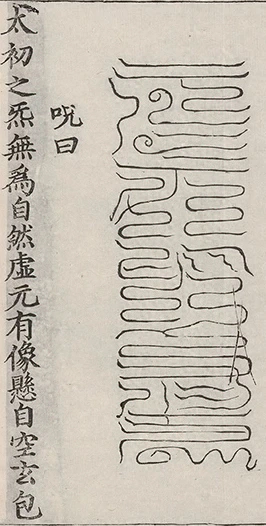 呪曰
太初之炁無爲自然虛元有像懸自空玄包